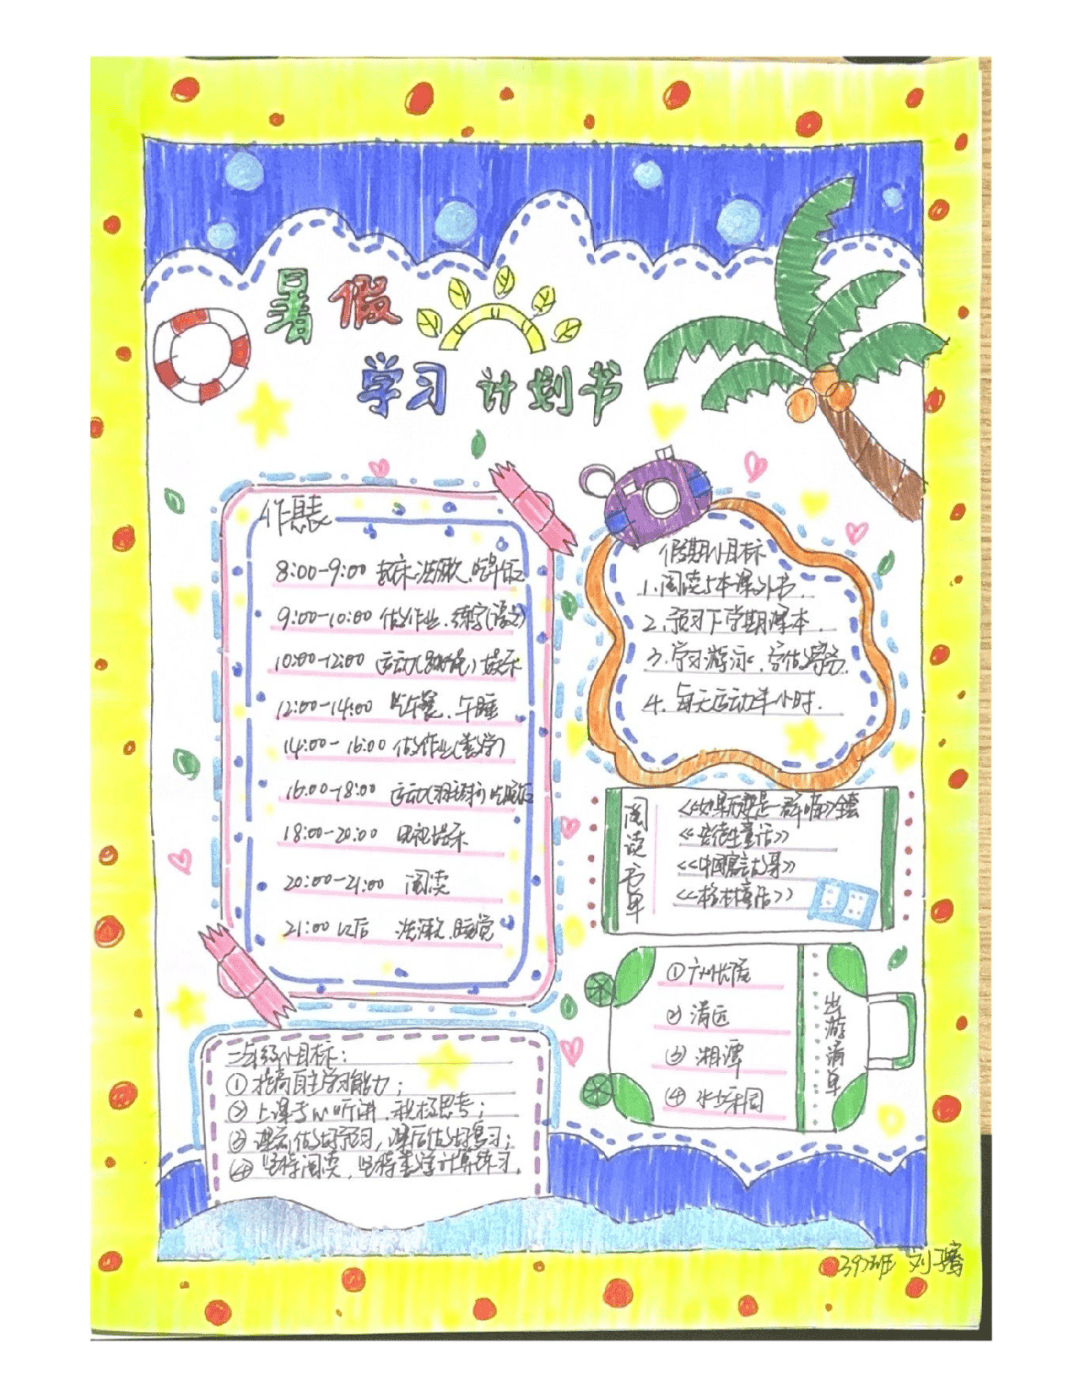 暑假
学习计划书
作息表
8:00-9:00 起床、洗漱、吃早饭
9:00-10:00 做作业、练字(语文)
10:00-12:00 运动() 娱乐
12:00-14:00 吃午餐、午睡
14:00-16:00 做作业(数学)
16:00-18:00 运动(羽毛球) 吃晚饭
18:00-20:00 电视娱乐
20:00-21:00 阅读
21:00以后 洗漱、睡觉
假期小目标
1.阅读5本课外书.
2.预习下学期课本.
3.学习游泳、学做家务.
4.每天运动半小时.
阅读书单
<<如果历史是一群喵>>全套
<<安徒生童话>>
<<中国寓言故事>>
<<格林童话>>
出游清单
①广州
②清远
③湘潭
④水上乐园
二年级小目标：
①提高自主学习能力；
②上课专心听讲、积极思考；
③课前做好预习，课后做好复习；
④坚持阅读，坚持数学计算练习.
班 刘骞